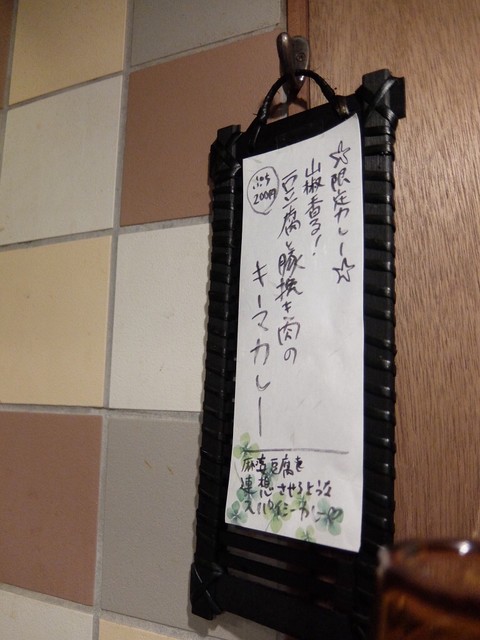 ☆限定カレー☆
山椒香る!
豆腐と豚挽き肉の
キーマカレー
ぷち
200円
麻婆豆腐を
連想させるような
スパイシーカレー♡